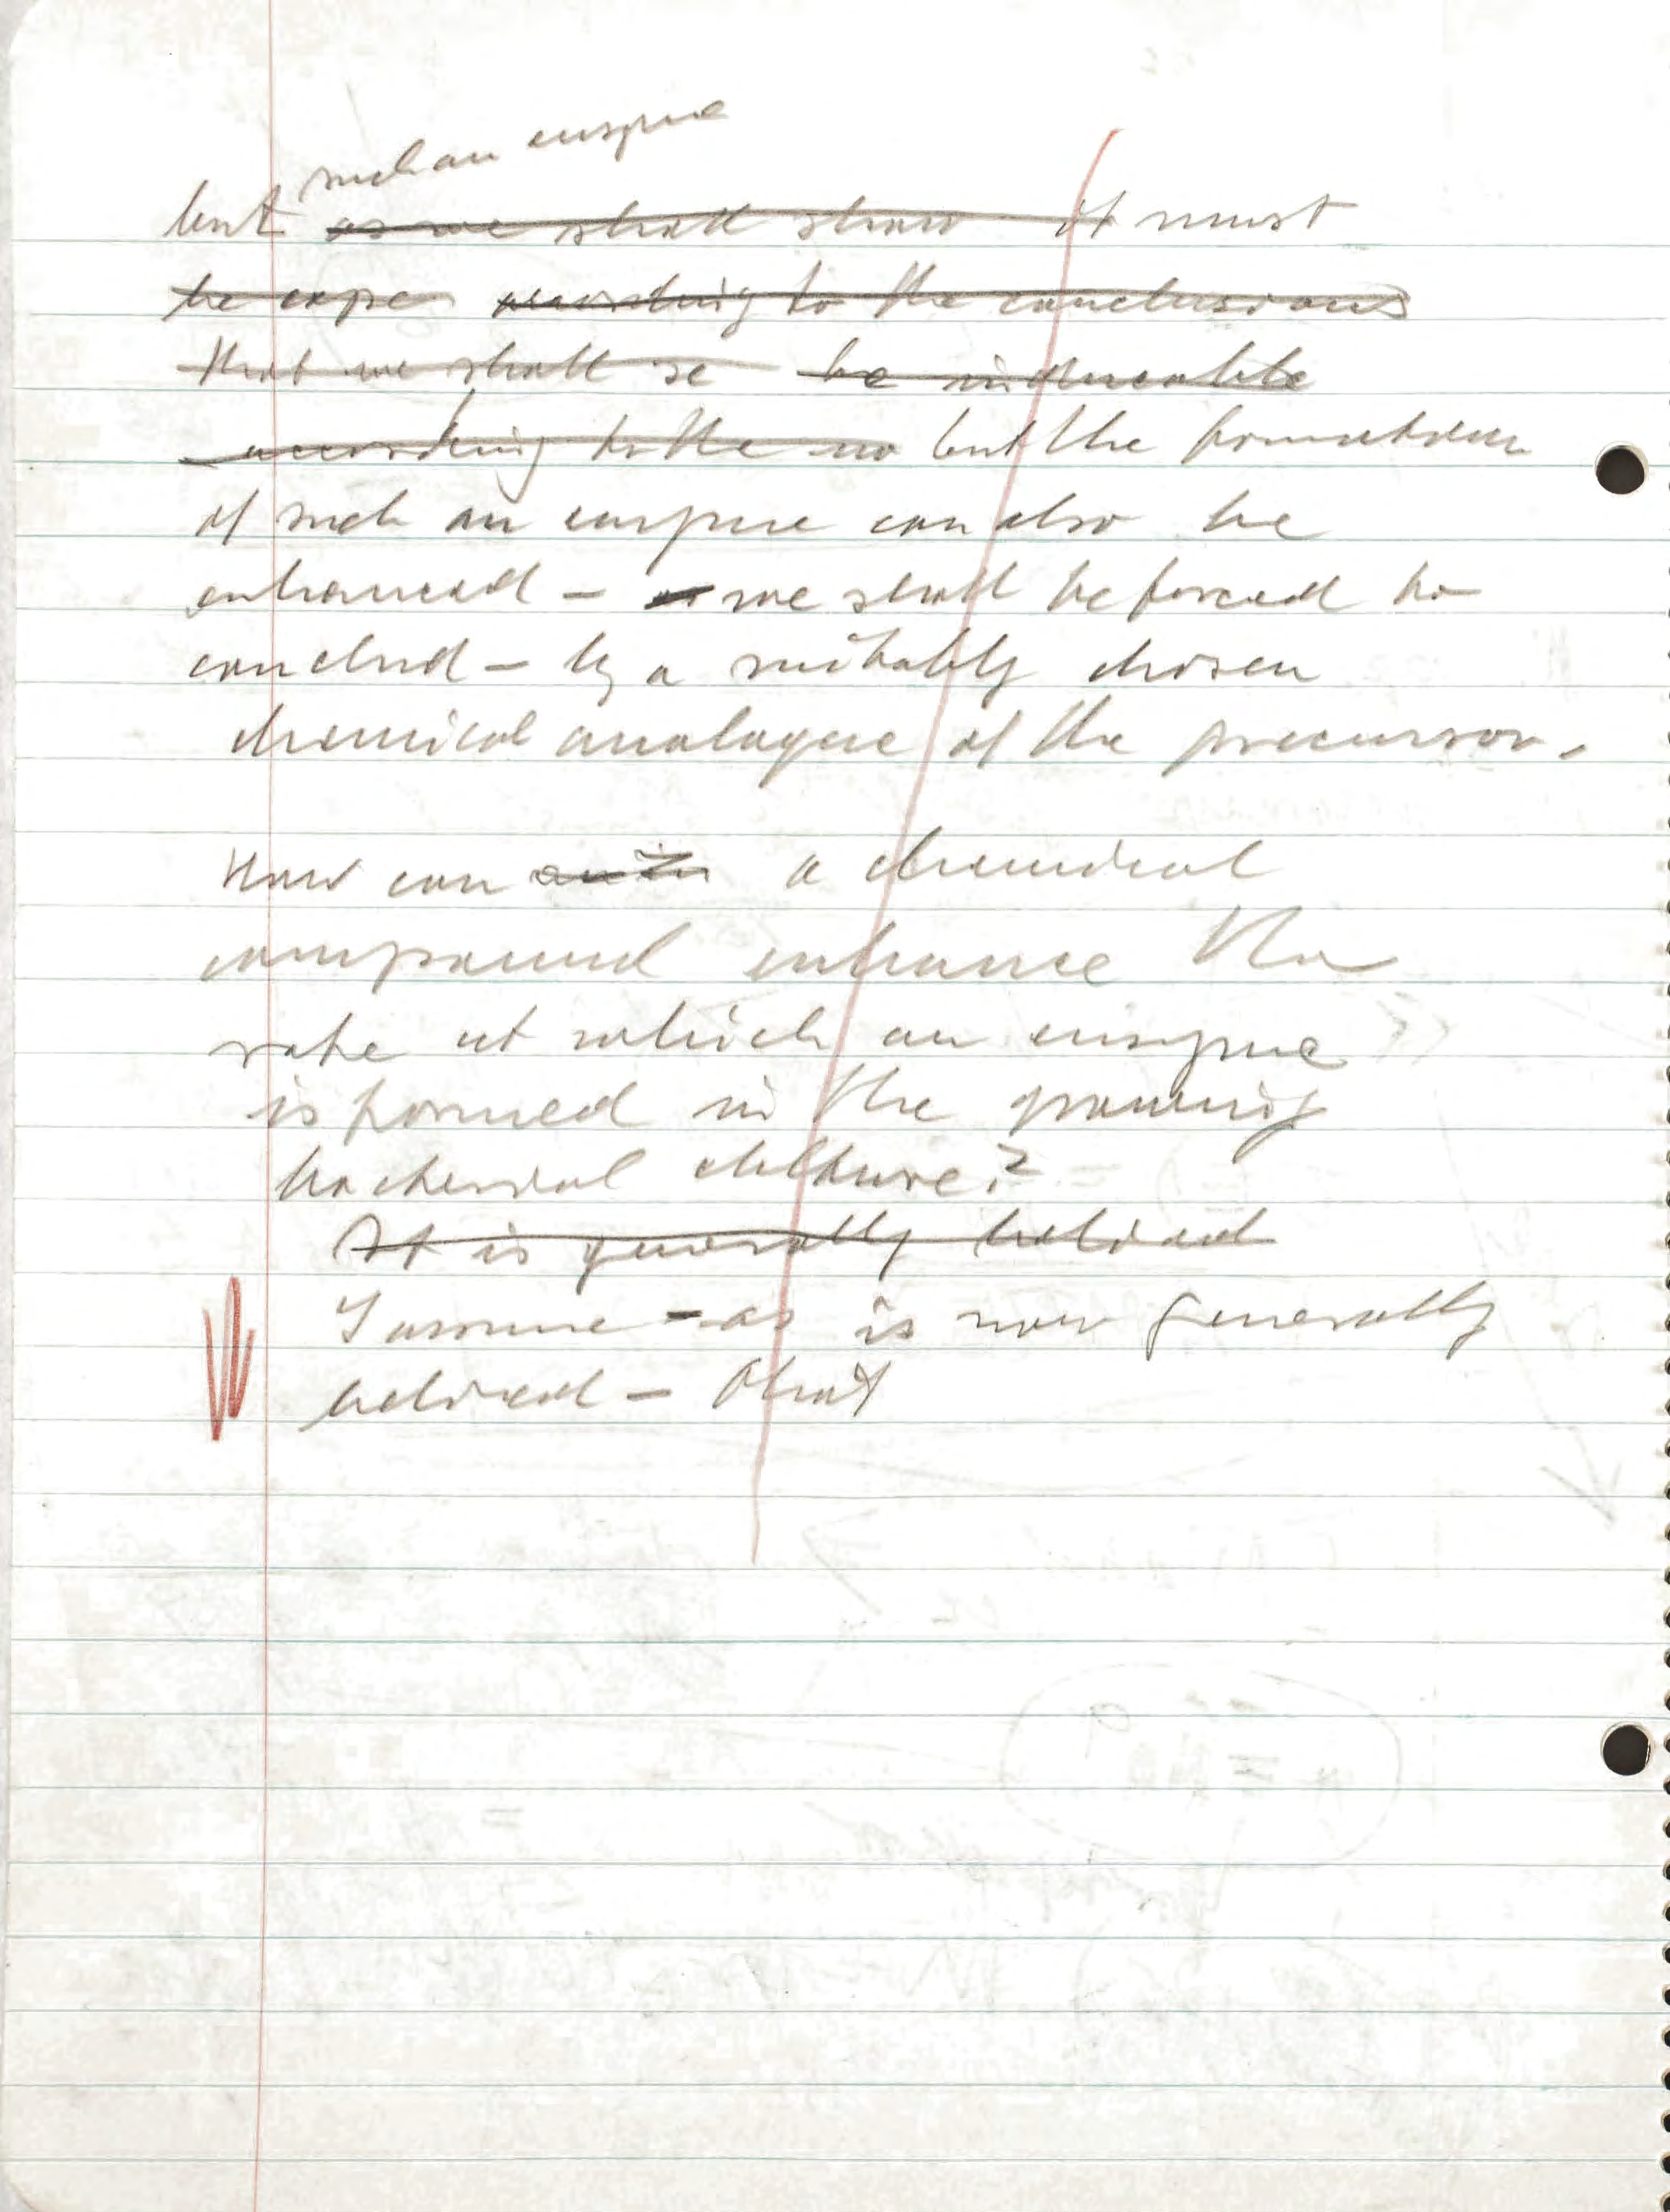 such an enzyme
but as we shall show it must
be expe according to the conclusions
that we shall se be inducable
according to the no but the formation
of such an enzyme can also be
enhanced – as we shall be forced to
conclud – by a suitably chosen
chemical analogue of the precursor.
How can a chemical
compound enhance the
rate at which an enzyme
is formed in the growing
bacterial culture?
It is generally belived
I assume – as is now generally
belived – that